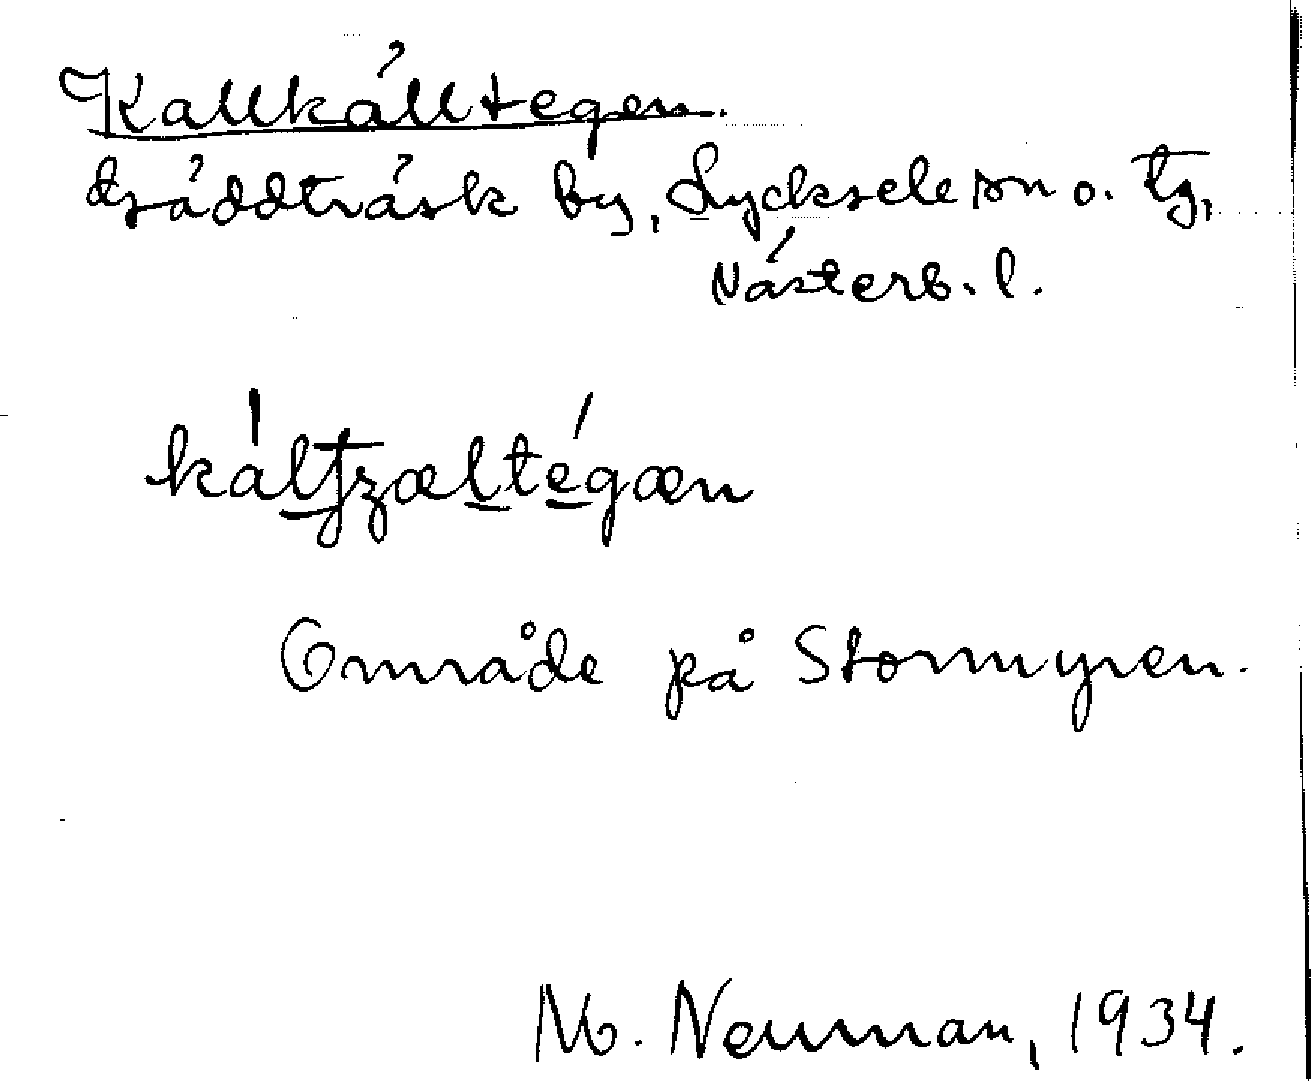 Kallkälltegen.
Gäddträsk by, Lycksele sn o. tg,
Västerb. l.
Område på Stormyren.
M. Neuman, 1934.